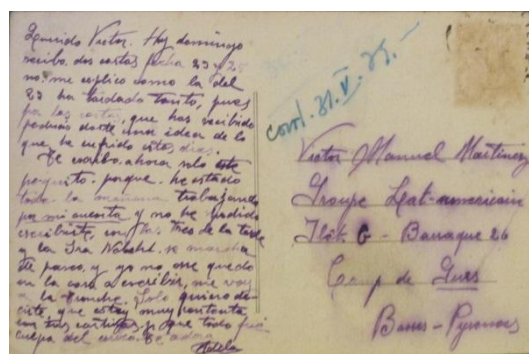 Querido Victor. Hoy domingo
recibo dos cartas fecha 23 y 25
no me explico como la del
23 ha tardado tanto, pues
por las cartas, que has recibido
podrás darte una idea de lo
que he sufrido estos dias.
Te escribo ahora solo este
poquito porque he estado
toda la mañana trabajando
por mi cuenta y no he podido
escribirte, son las tres de la tarde
y la Sra se marcha
de paseo, y yo no me quedo
en la casa a escribir, me voy
a la Solo quiero de-
cirte, que estoy muy contenta
con tus cartitas, y que todo fué
culpa del Te adora
Adela
cont. 31. V. 39.-
Victor Manuel Martinez
Groupe Lat-americain
Ilôt G - Barraque 26
Camp de Gurs
Basses-Pyrenees